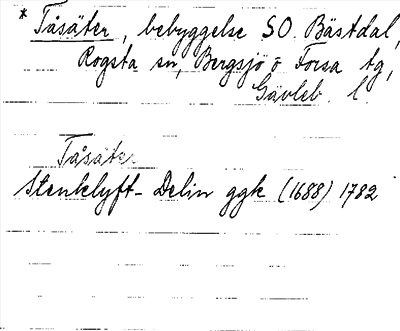 * Tåsäter, bebyggelse SO. Bästdal,
Rogsta sn, Bergsjö o Forsa tg,
Gävleb. l.
Tåsäter
Stenklyft- Delin ggk (1688) 1782